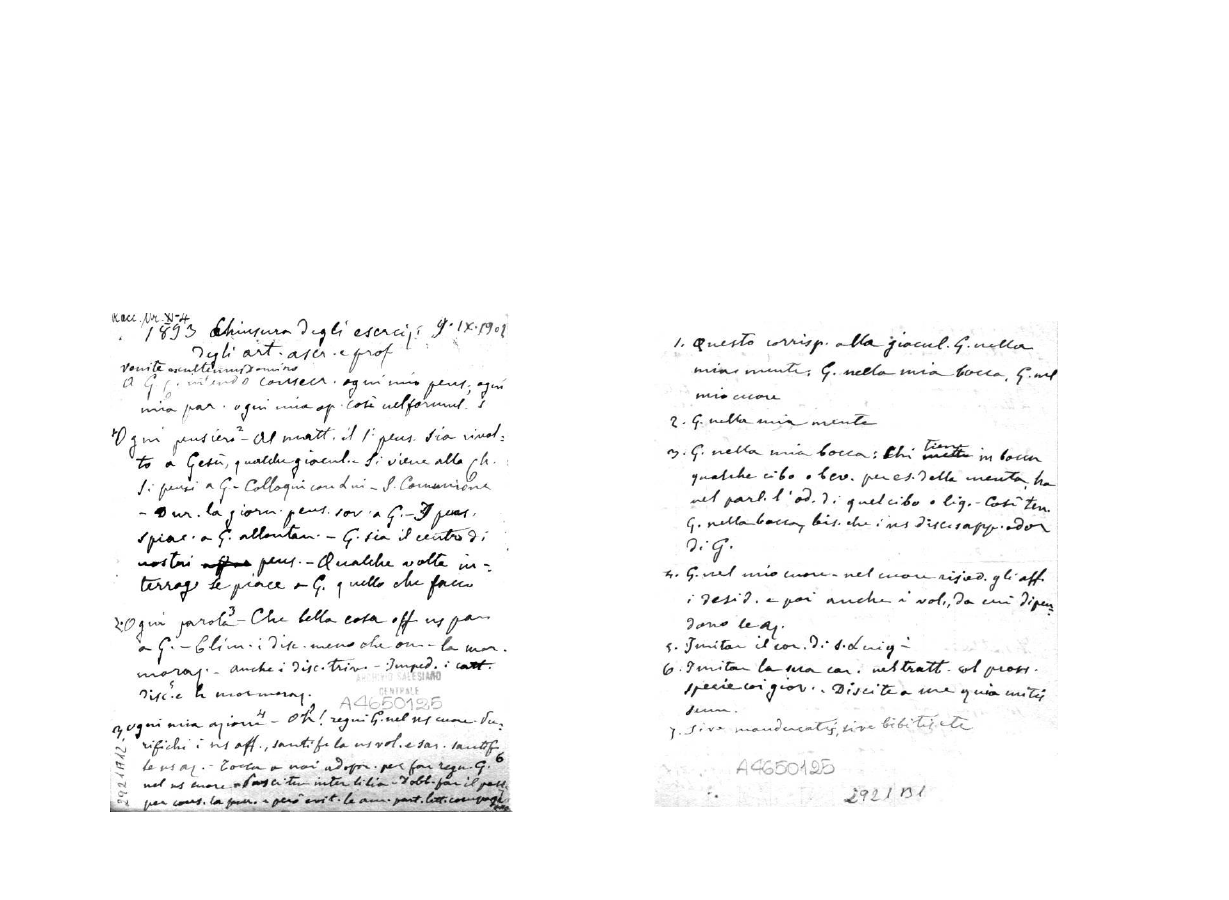 Racc. Nr. XI-4
1893 Chiusura degli esercizi 9·IX·1902
degli art. ascr. e prof
venite exultemus Domino
A G consecr. ogni mio pens, ogni
mia par. ogni mia op. così nel formul. s
1º Ogni pensiero² - Al matt. il 1º pens. sia rivol=
to a Gesù, qualche giacul. - Si viene alla ch.
Si pensi a G - Colloqui con Lui - S. Comunione
- Dur. la giorn. pens. sov. a G. - I pens.
spiac. a G. allontan. - G. sia il centro di
nostri pens. - Qualche volte in=
terrog se piace a G. quello che faccio
2º Ogni parola³ - Che bella cosa off ns par
a G. - Elim. i disc. meno che on - la mor.
moraz. - anche i disc. triv. - Imped. i catt.
disc.⁵ e le mormoraz.
ARCHIVIO SALESIANO
CENTRALE
A4650125
3º Ogni mia azione⁴ - Oh! regni G. nel ns cuore
rifichi i ns aff., santif. la ns vol. e sar. santif
le ns az. - Tocca a noi adopr. per far regn. G. ⁶
nel ns cuore - Pascitur inter lilia - Dobb. far il poss.
per cons. la pur. e però evit. le am. part. lett.
2921A12
1. Questo corrisp. alla giacul. G. nella
mia mente; G. nella mia bocca, G. nel
mio cuore
2. G. nella mia mente
3. G. nella mia bocca: Chi tiene mette in bocca
qualche cibo o bev. per es. della menta, ha
nel parl. l'od. di quel cibo o liq. - Così ten.
G. nella bocca, bis. che i ns disc. s app. odor
di G.
4. G. nel mio cuore - nel cuore risied. gli aff.
i desid. e poi anche i vol., da cui dipen=
dono le az.
5. Imitar il cor. di S. Luigi
6. Imitar la sua car. nel tratt. col pross.
specie coi giov. . Discite a me quia mitis
sum.
7. Sive manducatis, sive bibitis etc
A4650125
2921 B1